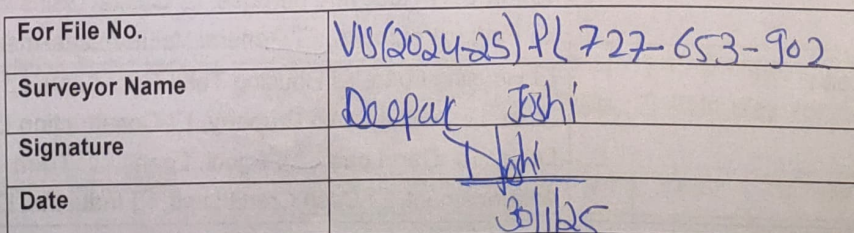 For File No. VIS(2024-25) PL 727-653-902
Surveyor Name Deepak Joshi
Signature DJoshi
Date 30/1/25